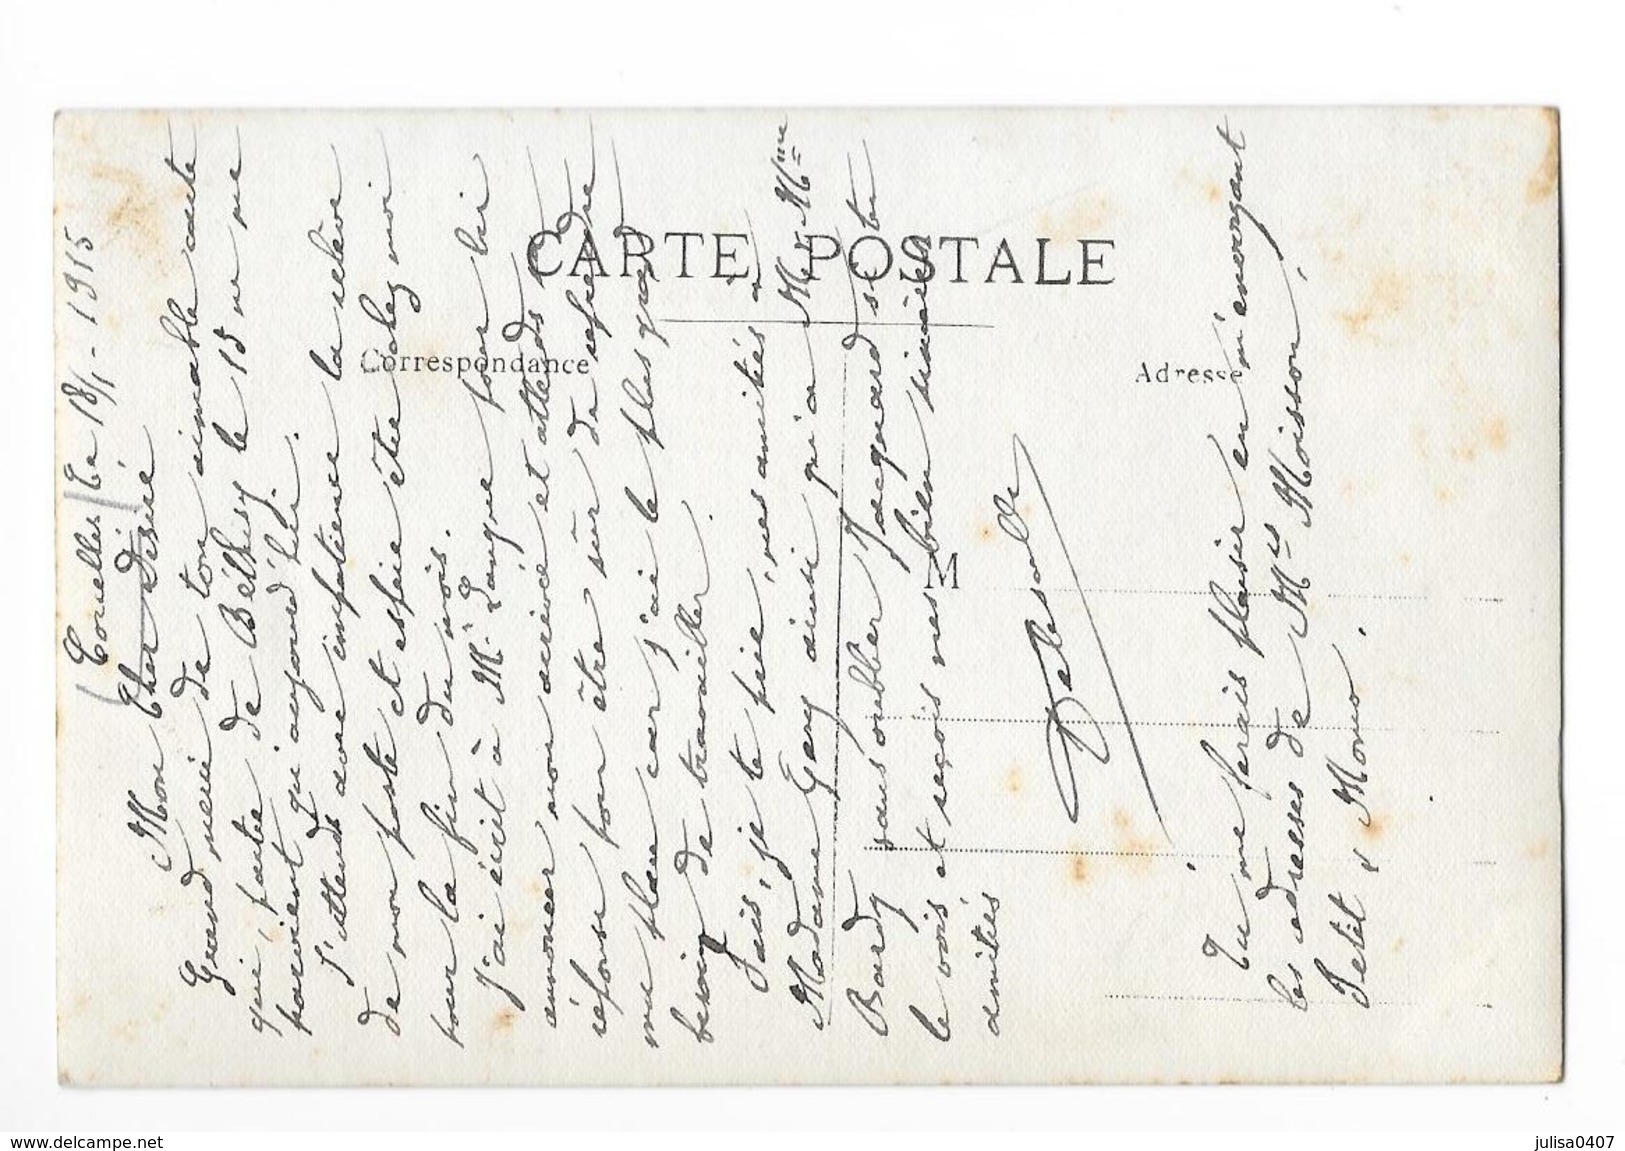 Tournelles Le 18/1 - 1915
Mon Cher Désiré
Grand merci de ton aimable carte
qui, partie de Béthisy le 15 ne me
parvient qu'aujourd'hui.
J'attends avec impatience la relève
de mon poste et espère être chez moi
pour la fin du mois.
J'ai écrit à M. Langue pour lui
annoncer mon arrivée et attends sa
réponse pour être sûr de reprendre
ma place car j'ai le plus grand
besoin de travailler.
Fais, je te prie, mes amitiés à
Madame Gery ainsi qu'à Mr & Mme
Bardy sans oublier Jacquard si tu
le vois et reçois mes bien sincères
amitiés
Delesalle
Tu me ferais plaisir en m'envoyant
les adresses de Mrs Moisson,
Petit & Mono.
CARTE POSTALE
Correspondance
Adresse
M
www.delcampe.net
julisa0407